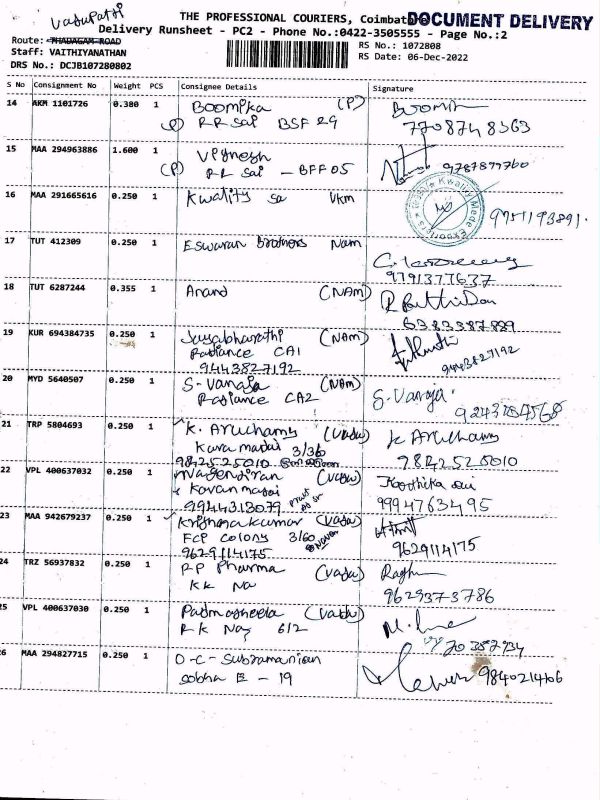 Vadupatti
THE PROFESSIONAL COURIERS, Coimbato
DOCUMENT DELIVERY
Delivery Runsheet - PC2 - Phone No.:0422-3505555 - Page No.:2
Route: THADAGAM ROAD
RS No.: 1072808
Staff: VAITHIYANATHAN
RS Date: 06-Dec-2022
DRS No.: DCJB107280802
S No Consignment No Weight PCS Consignee Details Signature
14 AKM 1101726 0.380 1 Boomika (P)
(P) RR Sai BSF 29
7708748363
15 MAA 294963886 1.600 1 Vignesh
(P) RR Sai - BFF 05 9787877760
16 MAA 291665616 0.250 1 Kwality Sa Vkm
9751193891.
17 TUT 412309 0.250 1 Eswaran brothers Nam
9791377637
18 TUT 6287244 0.355 1 Anand (NAm)
6383387889
19 KUR 694384735 0.250 1 Jayabharathi (NAm)
Radiance CA1
9443827192 9443827192
20 MYD 5640507 0.250 1 S. Vanaja (NAm) S. Vanaja
Radiance CA2
21 TRP 5804693 0.250 1 K. Aruchamy (Vadu) K Aruchamy
Karamadai 3/36
9842525010 9842525010
22 VPL 400637032 0.250 1 Nagendiran (Vadu) Karthika
9944313079 9994763495
23 MAA 942679237 0.250 1 Krishnakumar (Vadu)
FCP Colony 3/60
9629114175 9629114175
24 TRZ 56937832 0.250 1 RP Pharma (Vadu) Raghu
KK Na 9629373786
25 VPL 400637030 0.250 1 Padmasheela (Vadu)
RK Nag 612
26 MAA 294827715 0.250 1 O-C-Subramanian
Sobha E - 19 9840214106